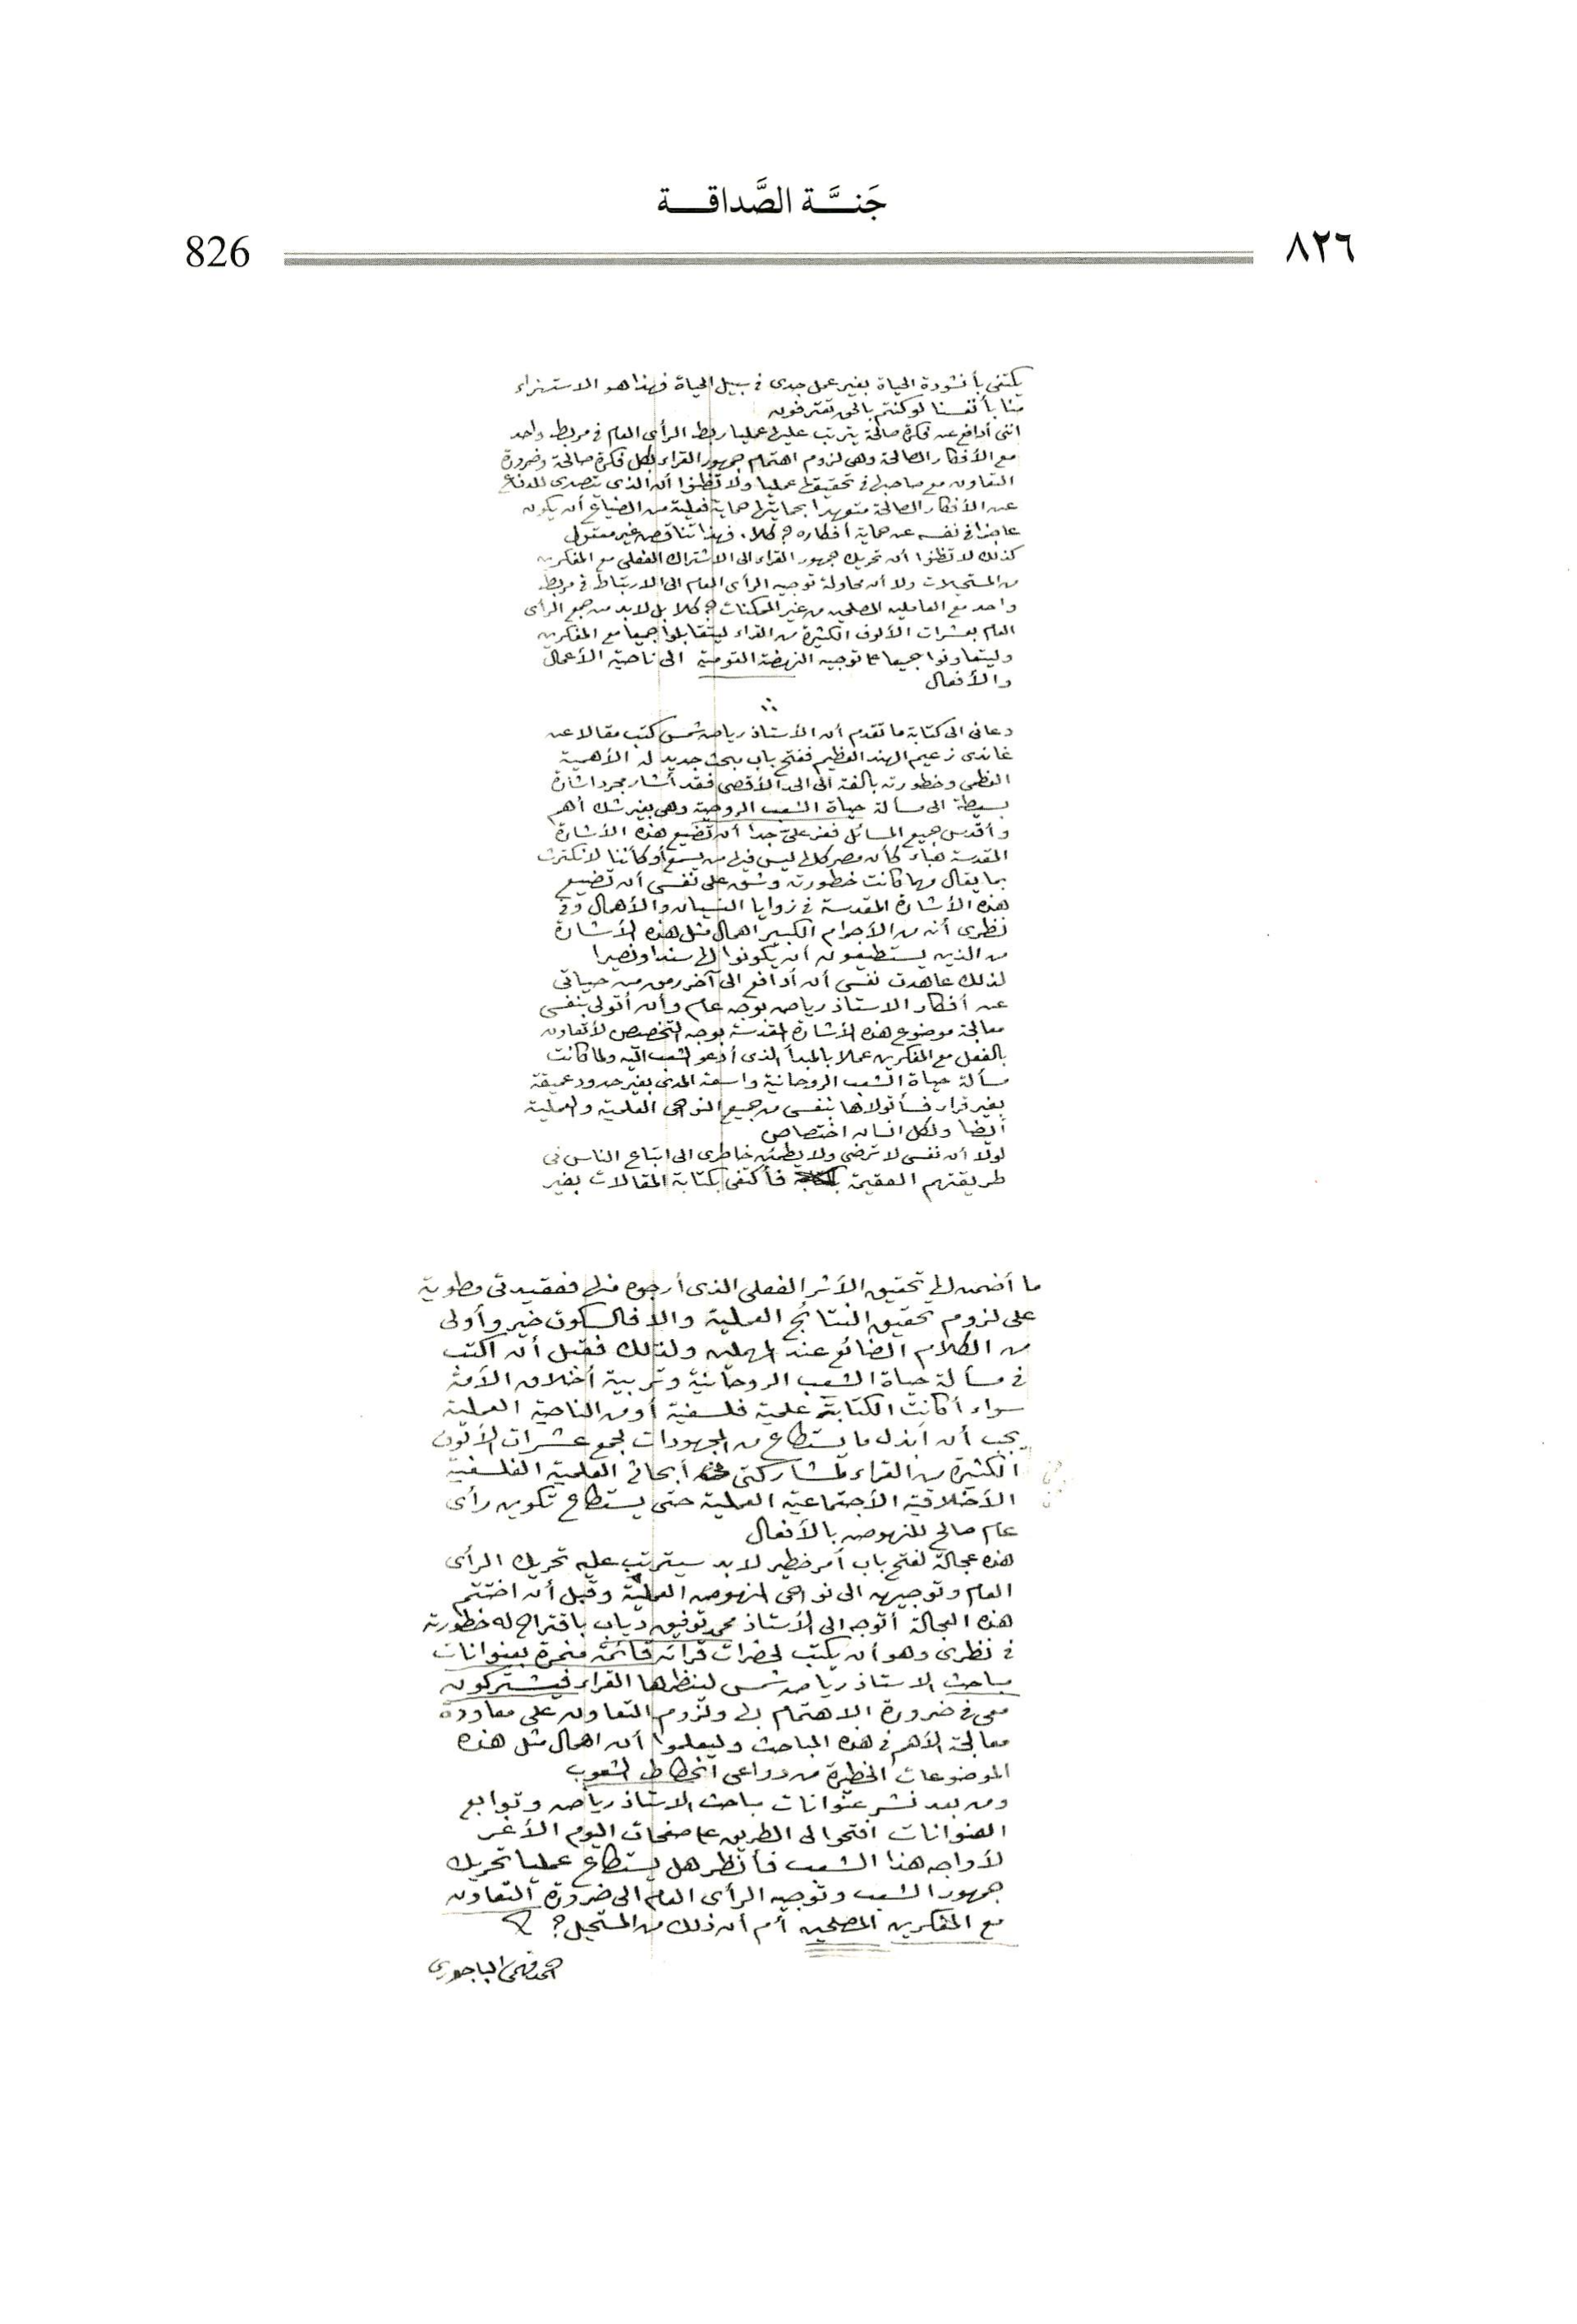 جَنَّة الصَّداقة
826
٨٢٦
يكتفى بأنشودة الحياة بغير عمل جدى فى سبيل الحياة فهذا هو الاستهزاء
منا بأنفسنا لو كنتم بالحق تعترفون
اننى أدافع عن فكرة صالحة يترتب عليها عمليا ربط الرأى العام فى مربط واحد
مع الأفكار الصالحة وهى لزوم اهتمام جمهور القراء بكل فكرة صالحة وضرورة
التعاون مع صاحبها فى تحقيقها عمليا ولا تظنوا أن الذى يتصدى للدفاع
عن الأفكار الصالحة متعهدا بحمايتها حماية فعلية من الضياع أن يكون
عاجزا فى نفسه عن حماية أفكاره ؟ كلا . فهذا تناقض غير معقول
كذلك لا تظنوا أن تحريك جمهور القراء الى الاشتراك الفعلى مع المفكرين
من المستحيلات ولا أن محاولة توجيه الرأى العام الى الارتباط فى مربط
واحد مع العاملين المصلحين من غير الممكنات ؟ كلا بل لابد من جمع الرأى
العام بعشرات الألوف الكثيرة من القراء ليتقابلوا جميعا مع المفكرين
وليتعاونوا جميعا على توجيه النهضة القومية الى ناحية الأعمال
والأفعال
دعانى الى كتابة ما تقدم أن الأستاذ رياض شمس كتب مقالا عن
غاندى زعيم الهند العظيم ففتح باب بحث جديد له الأهمية
العظمى وخطورته بالغة الى الحد الأقصى فقد أشار مجرد اشارة
بسيطة الى مسألة حياة الشعب الروحية وهى بغير شك أهم
وأقدس جميع المسائل فعز علىّ جدا أن تضيع هذه الأشارة
المقدسة هباء كأن مصر كلها ليس فيها من يسمع أو كأننا لا نكترث
بما يقال مهما كانت خطورته وشق على نفسى أن تضيع
هذه الأشارة المقدسة فى زوايا النسيان والأهمال وفى
نظرى أنه من الأجرام الكبير اهمال مثل هذه الأشارة
من الذين يستطيعون أن يكونوا لها سندا ونصيرا
لذلك عاهدت نفسى أن أدافع الى آخر رمق من حياتى
عن أفكار الاستاذ رياض بوجه عام وأن أتولى بنفسى
معالجة موضوع هذه الأشارة المقدسة بوجه التخصيص لأتعاون
بالفعل مع المفكرين عملا بالمبدأ الذى أدعو الشعب اليه ولما كانت
مسألة حياة الشعب الروحانية واسعة المدى بغير حدود عميقة
بغير قرار فسأتولاها بنفسى من جميع النواحى العلمية والعملية
أيضا ولكل انسان اختصاص
لولا أن نفسى لا ترضى ولا يطمئن خاطرى الى اتباع الناس فى
طريقتهم العقيمة فأكتفى بكتابة المقالات بغير
ما أضمن لها تحقيق الأثر الفعلى الذى أرجوه منها فعقيدتى مطوية
على لزوم تحقيق النتائج العملية والا فالسكوت خير وأولى
من الكلام الضائع عند المهملين ولذلك فقبل أن اكتب
فى مسألة حياة الشعب الروحانية وتربية أخلاق الأمة
سواء أكانت الكتابة علمية فلسفية أو من الناحية العملية
يجب أن أبذل ما يستطاع من المجهودات لجمع عشرات الألوف
الكثيرة من القراء لمشاركتى أبحاثى العلمية الفلسفية
الأخلاقية الأجتماعية العملية حتى يستطاع تكوين رأى
عام صالح للنهوض بالأفعال
هذه عجالة لفتح باب أمر خطير لابد سيترتب عليه تحريك الرأى
العام وتوجيهه الى نواحى النهوض العملية وقبل أن اختتم
هذه العجالة أتوجه الى الأستاذ محمد توفيق دياب باقتراح له خطورته
فى نظرى وهو أن يكتب لحضرات قرائه قائمة منمرة بعنوانات
مباحث الاستاذ رياض شمس لينظرها القراء فيشتركون
معى فى ضرورة الاهتمام بها ولزوم التعاون على معاودة
معالجة الأهم فى هذه المباحث وليعلموا أن اهمال مثل هذه
الموضوعات الخطيرة من دواعى انحطاط الشعوب
ومن بعد نشر عنوانات مباحث الاستاذ رياض وتوابع
العنوانات افتحوا لى الطريق على صفحات اليوم الأغر
لأواجه هذا الشعب فأنظر هل يستطاع عمليا تحريك
جمهور الشعب وتوجيه الرأى العام الى ضرورة التعاون
مع المفكرين المصلحين أم أن ذلك من المستحيل ؟
احمد فهمى الباجورى